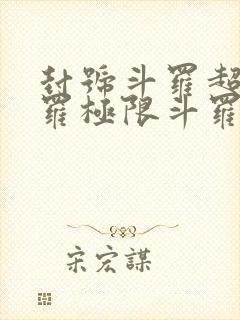 封號斗羅超
羅極限斗羅
宋宏謀